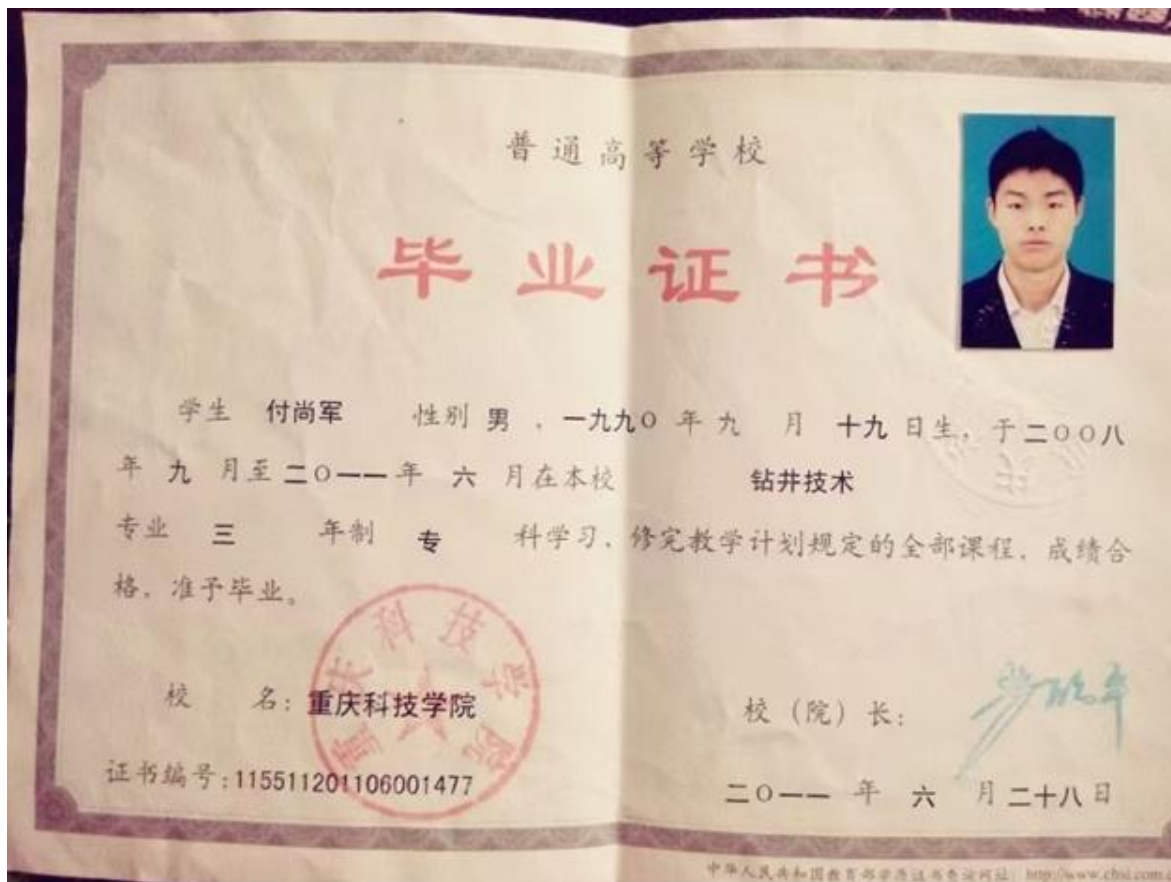 普通高等学校
毕业证书
学生 付尚军 性别 男 , 一九九〇 年 九 月 十九 日生, 于 二〇〇八
年 九 月至 二〇一一 年 六 月在本校 钻井技术
专业 三 年制 专 科学习, 修完教学计划规定的全部课程, 成绩合
格, 准予毕业。
重庆科技学院
校 名: 重庆科技学院
校 (院) 长:
证书编号: 115511201106001477
二〇一一 年 六 月 二十八 日
中华人民共和国教育部学历证书查询网址: http://www.chsi.com.c